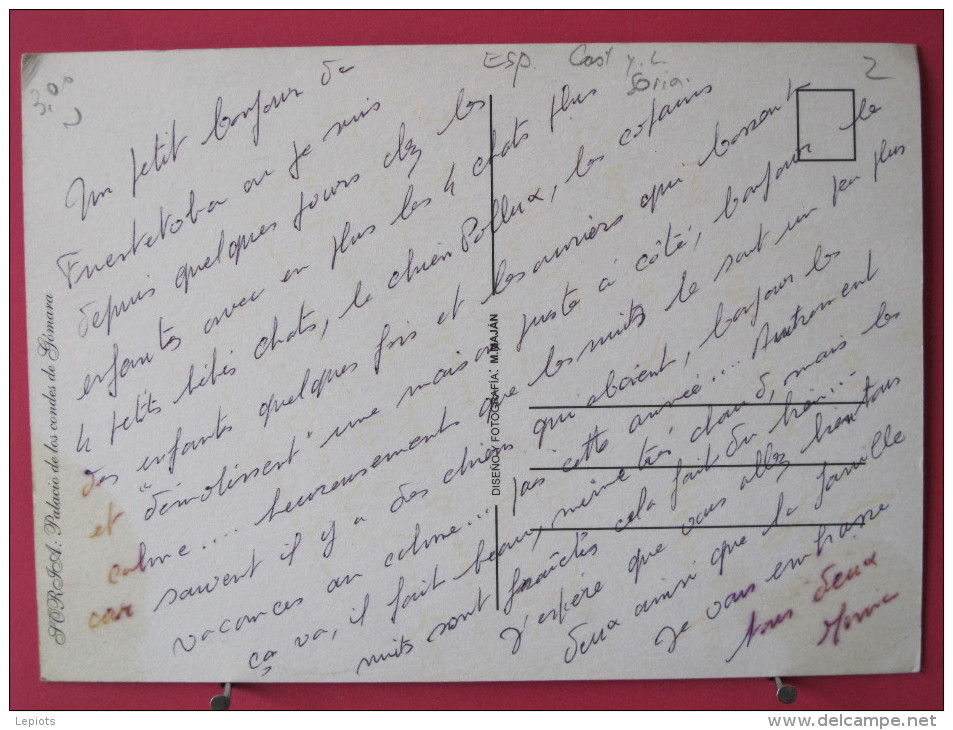 3.00
ESP. Cast y L
Soria.
2
Un petit bonjour de
Fuentetoba ou je suis
depuis quelques jours chez les
enfants avec en plus les 4 chats plus
4 petits bébés chats, le chien Pollux, les copains
des enfants quelques fois et les ouvriers qui bossent
et "démolissent" une maison juste à côté, bonjour le
calme.... heureusement que les nuits le sont un peu plus
car souvent il y a des chiens qui aboient, bonjour les
vacances au calme... pas cette année.... Autrement
ça va, il fait beau, même très chaud, mais les
nuits sont fraîches cela fait du bien...
J'espère que vous allez bien tous
deux ainsi que la famille
Je vous embrasse
tous deux
SORIA: Palacio de los condes de Gómara
DISEÑO Y FOTOGRAFÍA: M.MAJÁN
Lepiots
www.delcampe.net